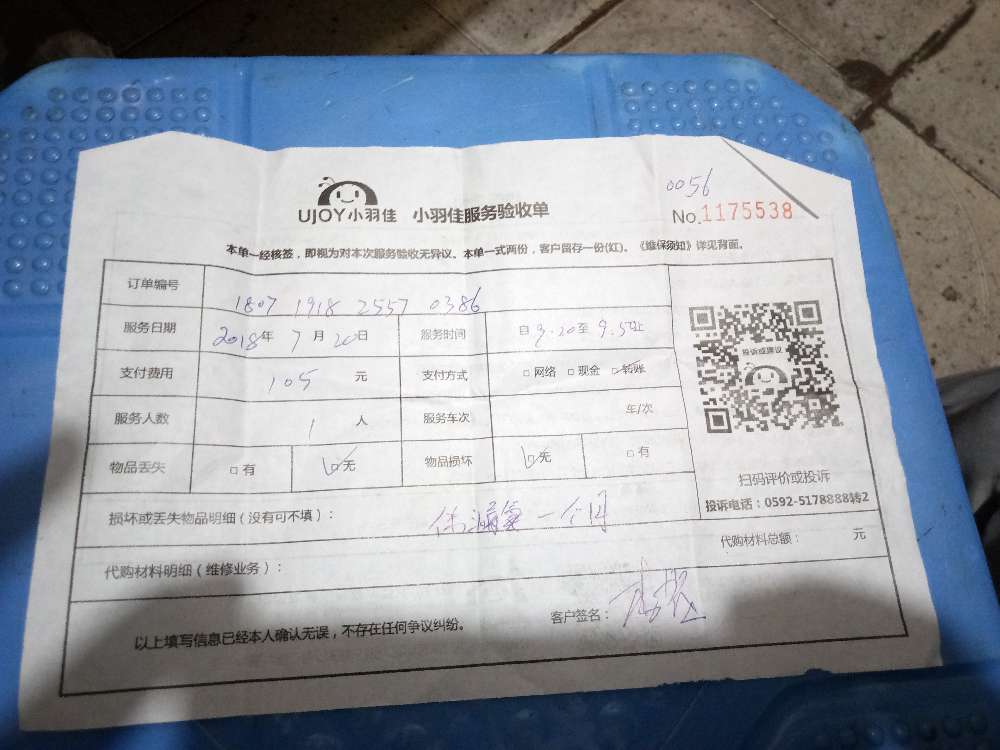 0056
UJOY小羽佳 小羽佳服务验收单 No.1175538
本单一经核签，即视为对本次服务验收无异议。本单一式两份，客户留存一份(红)。《维保须知》详见背面。
订单编号 1807 1918 2557 0386
服务日期 2018年 7月 20日 服务时间 自9.20至9.5 止
支付费用 105 元 支付方式 □网络 □现金 □转账
服务人数 1 人 服务车次 车/次
物品丢失 □有 □无 物品损坏 □无 □有
投诉或建议
扫码评价或投诉
投诉电话：0592-5178888转2
损坏或丢失物品明细（没有可不填）： 一个月
代购材料明细（维修业务）： 代购材料总额： 元
以上填写信息已经本人确认无误，不存在任何争议纠纷。 客户签名：